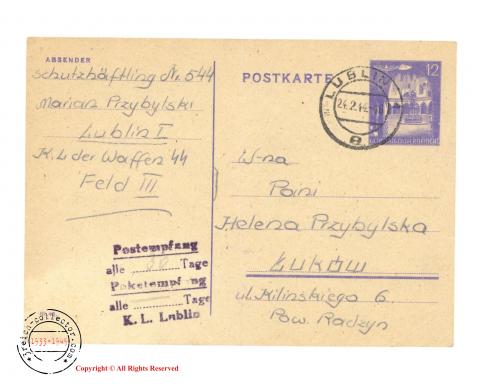 ABSENDER
Schutzhäftling Nr. 544
Marian Przybylski
Lublin I
K.L. der Waffen 44
Feld III
POSTKARTE
LUBLIN
24.2.44
e
12
W-na
Pani
Helena Przybylska
Łuków
ul. Kilinskiego 6
Pow. Radzyn
Postempfang
alle Tage
Paketempfang
alle Tage
K. L. Lublin
3reich-collector.com
1933-1945
Copyright © All Rights Reserved